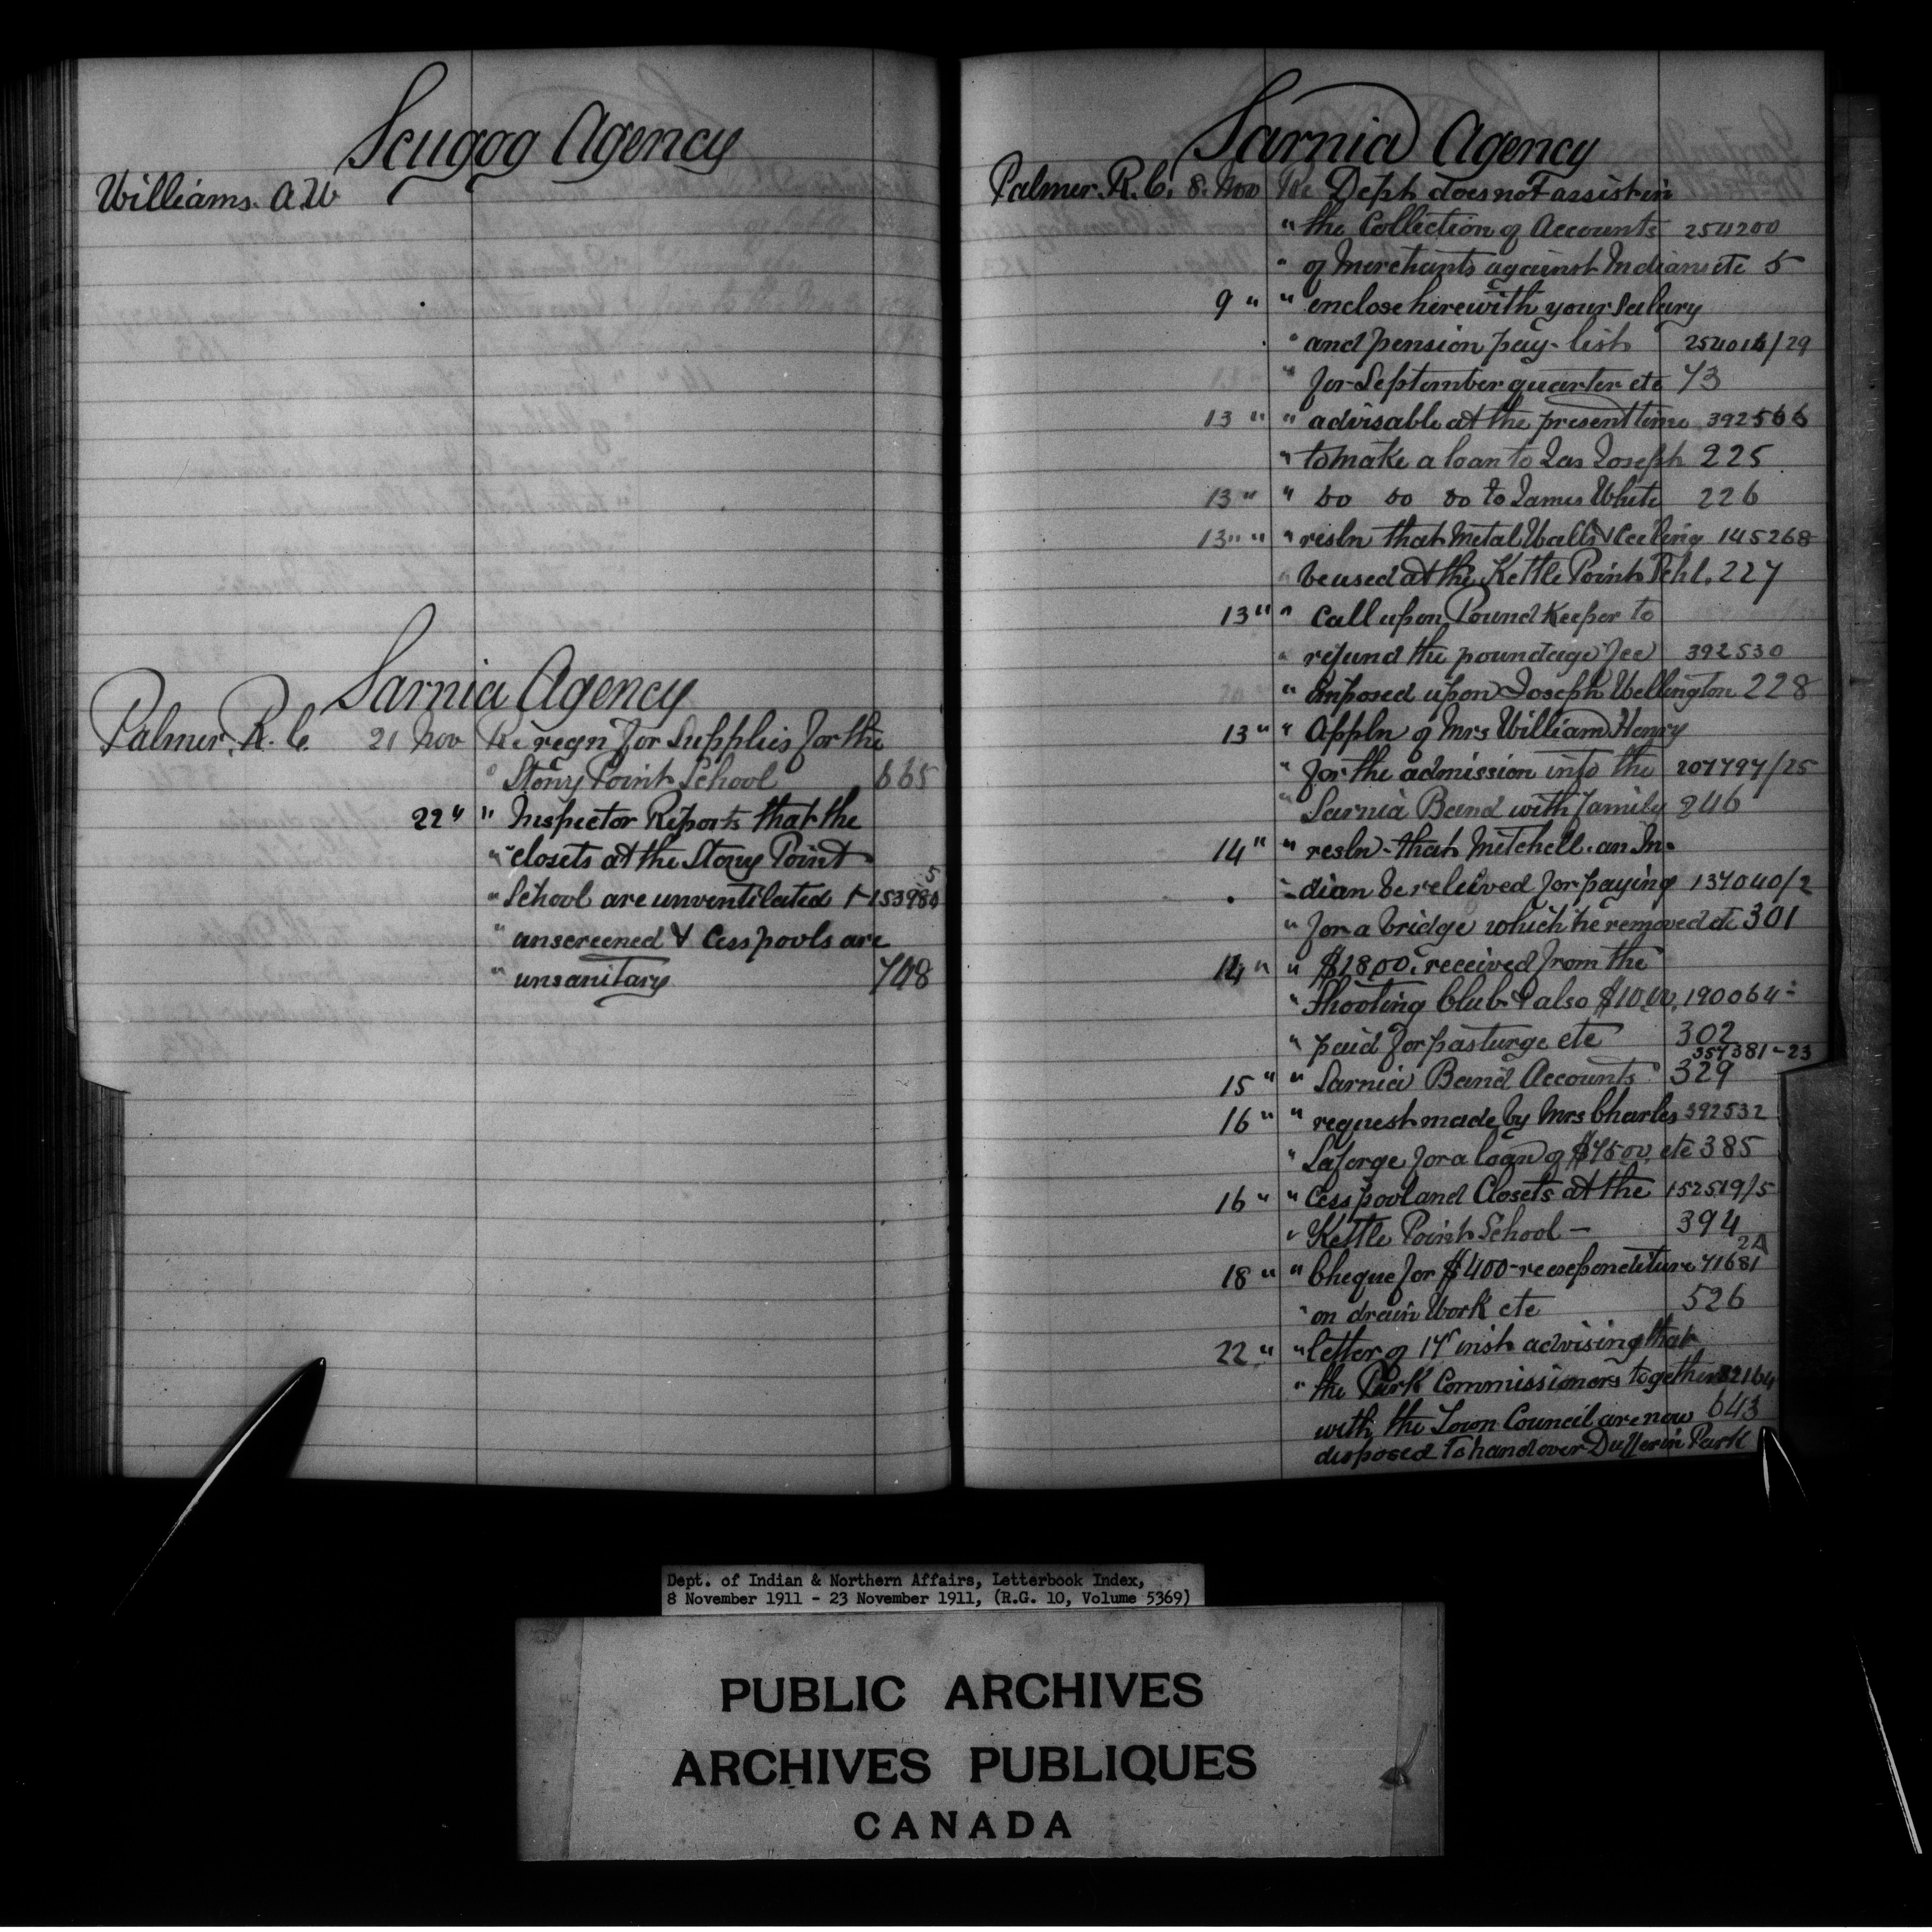 Scugog Agency
Williams. A.W
Sarnia Agency
Palmer, R. C. 21 Nov Re reqn for Supplies for the
" Stony Point School 665
22 " " Inspector Reports that the
" closets at the Stony Point
" School are unventilated + 153980 5
" unscreened & Cesspools are
" unsanitary 708
Sarnia Agency
Palmer. R. C. 8. Nov Re Deph does not assist in
" the Collection of Accounts 254200
" of Merchants against Indians etc 5
9 " " enclose herewith your Salary
" and pension pay-list 254014/29
" for September quarter etc 73
13 " " advisable at the present time 392566
" to make a loan to Jas Joseph 225
13 " " do do do to James White 226
13 " " " resln that Metal Walls & Ceeling 145268
" be used at the Kettle Point Schl. 227
13 " " Call upon Pound Keeper to
" refund the poundage fee 392530
" imposed upon Joseph Wellington 228
13 " " Appln of Mrs William Henry
" for the admission into the 207797/25
" Sarnia Band with family 246
14 " " resln - that Mitchell. an In-
- dian be releived for paying 137040/2
" for a bridge which he removed etc 301
14 " " $18.00. received from the
" Shooting Club & also $10.00, 190064-
" paid for pasturge etc 302
15 " " Sarnia Band Accounts 357381-23 329
16 " " request made by Mrs Charles 392532
" Laforge for a loan of $75.00, etc 385
16 " " Cesspool and Closets at the 152519/5
" Kettle Point School - 394
18 " " Cheque for $400 - re expenditure 71681 2A
" on drain Work etc 526
22 " " letter of 17" inst advising that
" the Park Commissioners together 32164
with the Town Council are now 643
disposed to hand over Dufferin Park
Dept. of Indian & Northern Affairs, Letterbook Index,
8 November 1911 - 23 November 1911, (R.G. 10, Volume 5369)
PUBLIC ARCHIVES
ARCHIVES PUBLIQUES
CANADA